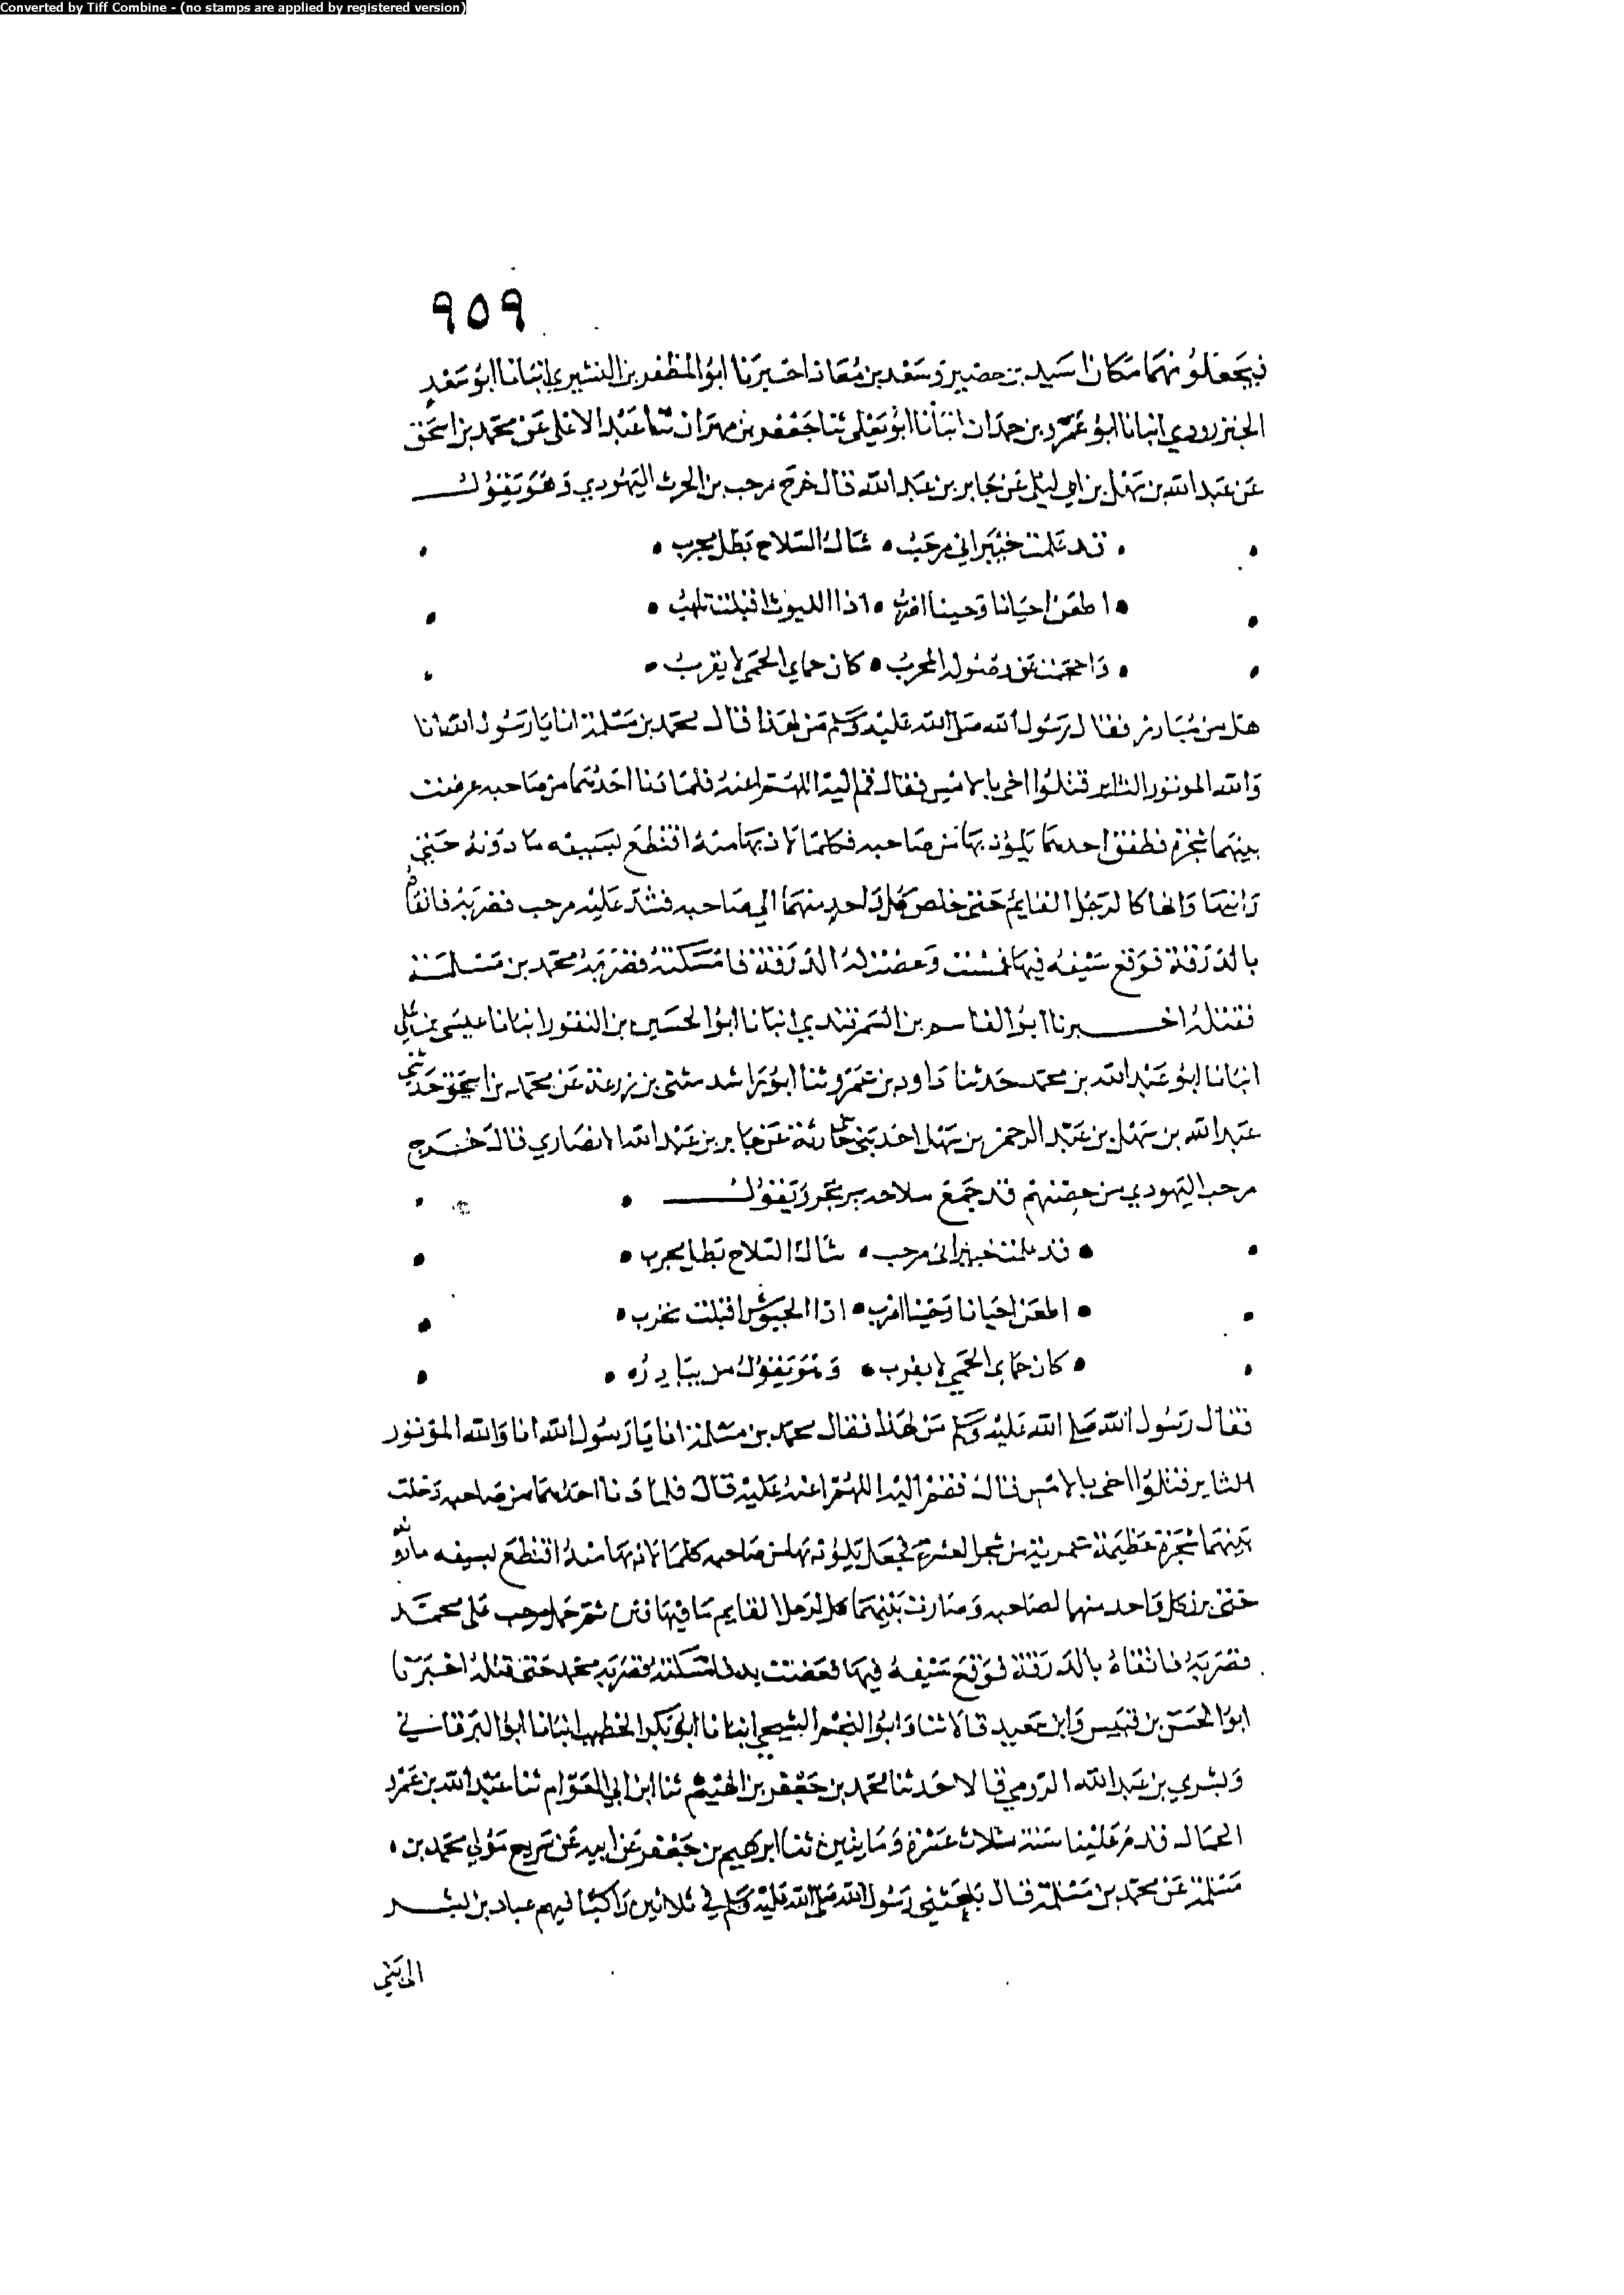 Converted by Tiff Combine - (no stamps are applied by registered version)
٩٥٩
فيجعلونهما مكان اسيد بن حضير وسعد بن معاذ اخبرنا ابو المظفر بن القشيري انبانا ابو سعد
الجنزرودي انبانا ابو عمرو بن حمدان انبانا ابو يعلى ثنا جعفر بن مهران ثنا عبد الاعلى عن محمد بن اسحق
عن عبد الله بن سهل بن ابي ليلى عن جابر بن عبد الله قال خرج مرحب بن الحرث اليهودي وهو يقول
قد علمت خيبر اني مرحب • شاك السلاح بطل مجرب
اطعن احيانا وحينا اضرب • اذا الليوث اقبلت تلهب
واحجمت عن صولة المحرب • كان حماي الحمى لا يقرب
هل من مبارز فقال رسول الله صلى الله عليه وسلم من لهذا قال محمد بن مسلمة انا يا رسول الله انا
والله الموتور الثاير قتلوا اخي بالامس فقال قم اليه اللهم اعنه فلما دنا احدهما من صاحبه عرضت
بينهما شجرة فطفق احدهما يلوذ بها من صاحبه فكلما لاذ بها منه اقتطع بسيفه ما دونه حتى
رايتها وانها كالرجل القايم حتى خلص كل واحد منهما الى صاحبه فشد عليه مرحب فضربه فاتقاه
بالدرقة فوقع سيفه فيها فمشت وعضت له الدرقة فامسكته فضربه محمد بن مسلمة
فقتله اخبرنا ابو القاسم بن السمرقندي انبانا ابو الحسين بن النقور انبانا عيسى بن علي
انبانا ابو عبد الله بن محمد حدثنا داود بن عمرو ثنا ابو راشد مثنى بن زرعة عن محمد بن اسحق حدثني
عبد الله بن سهل بن عبد الرحمن بن سهل احد بني حارثة عن جابر بن عبد الله الانصاري قال خرج
مرحب اليهودي من حصنهم قد جمع سلاحه يرتجز ويقول
قد علمت خيبر اني مرحب • شاك السلاح بطل مجرب
اطعن احيانا وحينا اضرب • اذا الجيوش اقبلت تحرب
كان حماي الحمى لا يقرب • وهو يقول من يبارزه
فقال رسول الله صلى الله عليه وسلم من لهذا فقال محمد بن مسلمة انا يا رسول الله انا والله الموتور
الثاير قتلوا اخي بالامس قال فقم اليه اللهم اعنه عليه قال فلما دنا احدهما من صاحبه دخلت
بينهما شجرة عظيمة عمرية من شجر العشر فجعل يلوذ بها من صاحبه كلما لاذ بها منه اقتطع بسيفه ما دونه
حتى برز كل واحد منهما لصاحبه وصارت بينهما كالرجل القايم ما فيها فنن ثم حمل مرحب على محمد
فضربه فاتقاه بالدرقة فوقع سيفه فيها فعضت به فامسكته فضربه محمد حتى قتله اخبرنا
ابو الحسن بن قبيس وابن سعيد قالا ثنا وابو النجم الشيحي انبانا ابو بكر الخطيب انبانا ابو البرقاني
وبشرى بن عبد الله الرومي قالا حدثنا محمد بن جعفر بن الهيثم ثنا ابن ابي العوام ثنا عبد الله بن عمرو
الحمال قدم علينا سنة ثلاث عشرة ومايتين ثنا ابرهيم بن جعفر عن ابيه عن سريح مولى محمد بن
مسلمة عن محمد بن مسلمة قال بعثني رسول الله صلى الله عليه وسلم في ثلاثين راكبا فيهم عباد بن بشر
الى بني